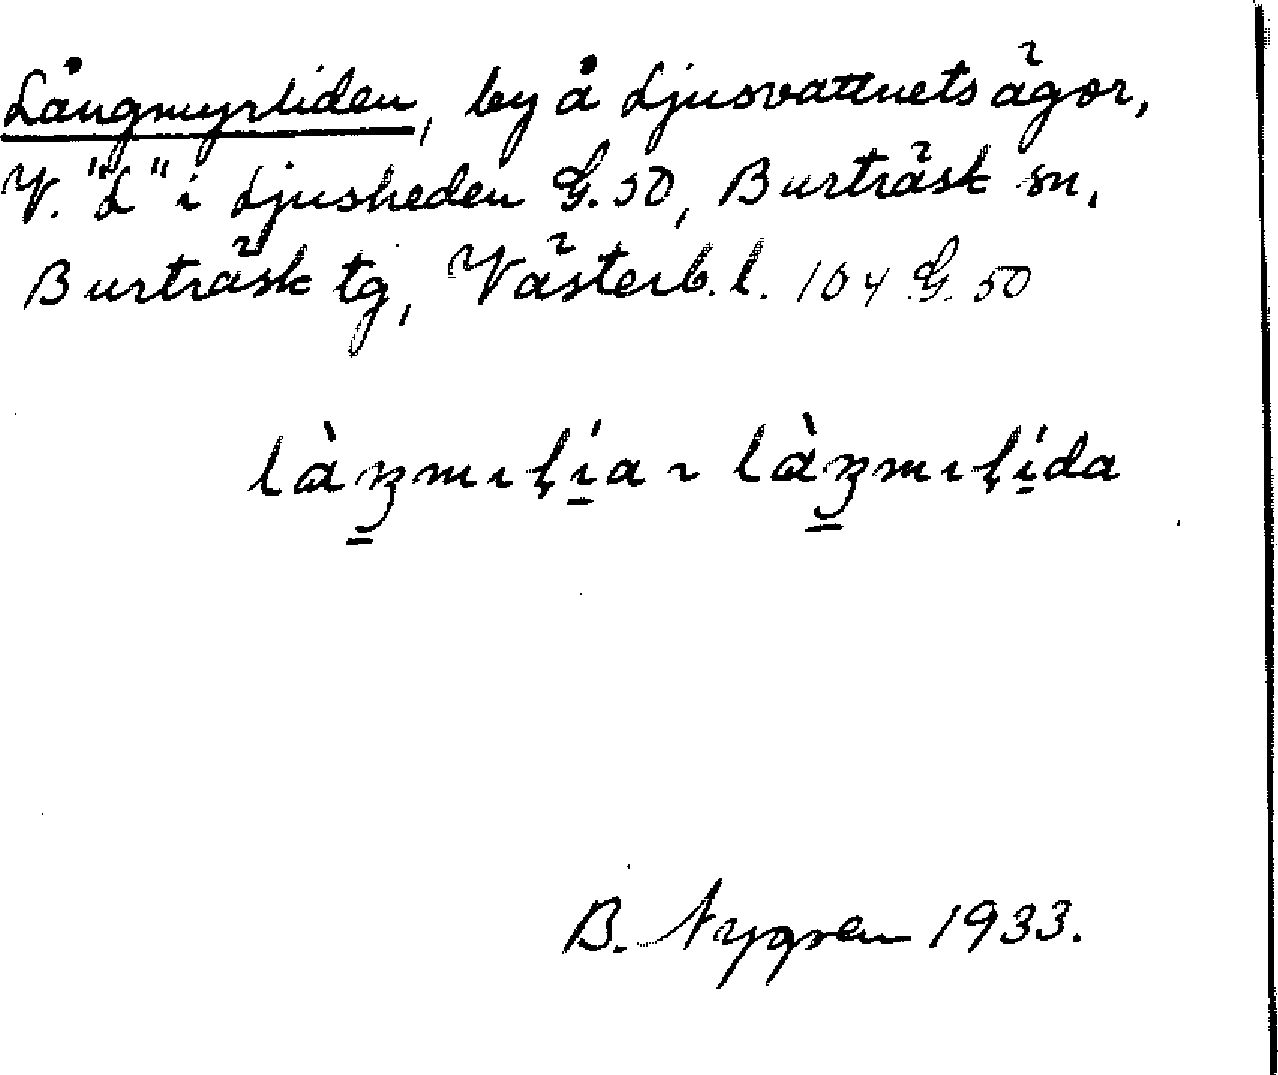 Långmyrliden, by å Ljusvattnets ägor,
V. "L" i Ljusheden G. 50, Burträsk sn,
Burträsk tg, Västerb. l. 104 G. 50
làŋmɩḷi̱a ~ làŋmɩḷi̱da
B. Nygren 1933.